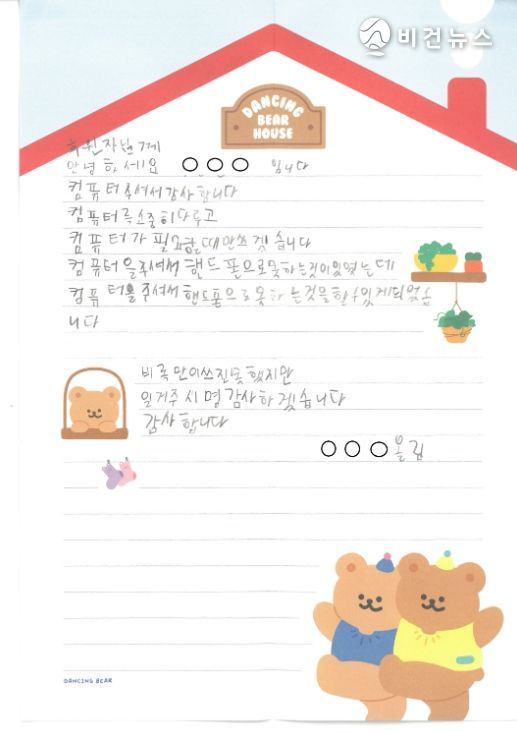 비건뉴스
DANCING
BEAR
HOUSE
후원자님께
안녕하세요 ○○○ 입니다
컴퓨터주셔서감사합니다
컴퓨터를소중히다루고
컴퓨터가 필요할때만쓰겟습니다
컴퓨터을주셔서 핸드폰으로못하는것이있었는데
컴퓨터를주셔서핸드폰으로못하는것을할수있게되었습
니다
비록만이쓰진못했지만
일거주시명감사하겠습니다
감사합니다
○○○올림
DANCING BEAR